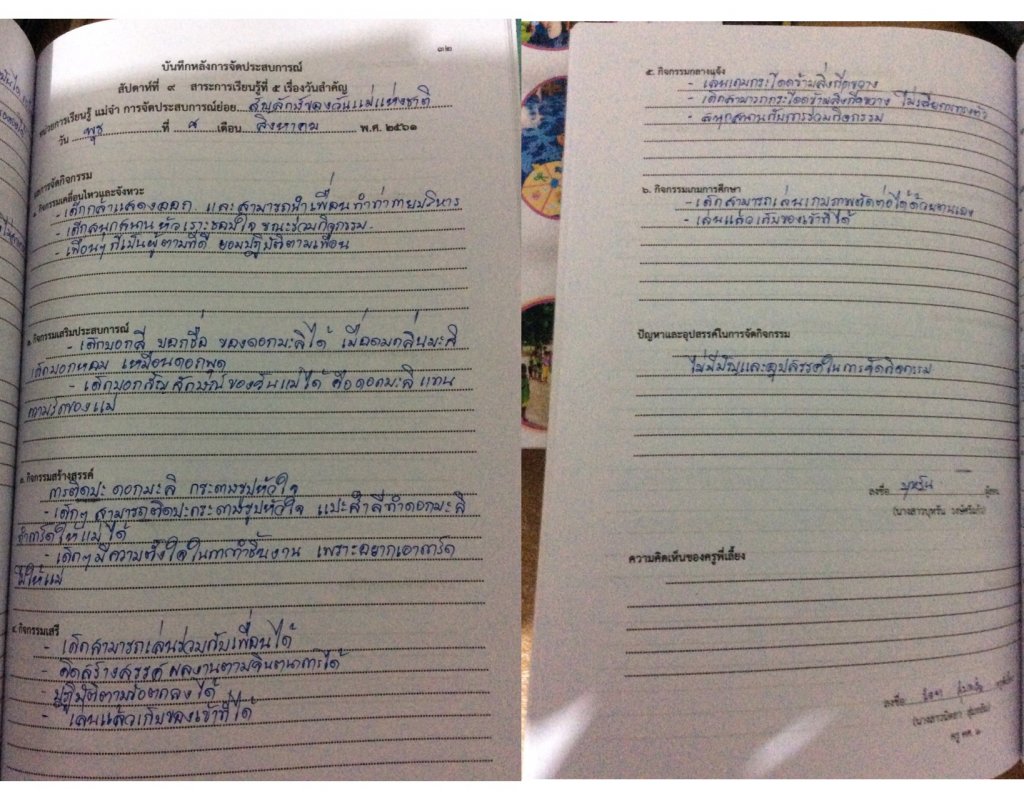 ๓๒
บันทึกหลังการจัดประสบการณ์
สัปดาห์ที่ ๙ สาระการเรียนรู้ที่ ๕ เรื่องวันสำคัญ
หน่วยการเรียนรู้ แม่จ๋า การจัดประสบการณ์ย่อย สัญลักษ์ของวันแม่แห่งชาติ
วัน พุธ ที่ ๘ เดือน สิงหาคม พ.ศ. ๒๕๖๑
ผลการจัดกิจกรรม
๑. กิจกรรมเคลื่อนไหวและจังหวะ
- เด็กกล้าแสดงออก และสามารถนำเพื่อนทำท่ากายบริหาร
- เด็กสนุกสนาน หัวเราะชอบใจ ขณะร่วมกิจกรรม
- เพื่อนๆ ก็เป็นผู้ตามที่ดี ยอมปฏิบัติตามเพื่อน
๒. กิจกรรมเสริมประสบการณ์
- เด็กบอกสี บอกชื่อ ของดอกมะลิได้ เมื่อดมกลิ่นมะลิ
เด็กบอกหอม เหมือนดอกพุด
- เด็กบอกสัญลักษณ์ของวันแม่ได้ คือดอกมะลิ แทน
ความรักของแม่
๓. กิจกรรมสร้างสรรค์
การติดปะ ดอกมะลิ กระดาษรูปหัวใจ
- เด็กๆ สามารถติดปะกระดาษรูปหัวใจ แปะสำลีทำดอกมะลิ
ทำการ์ดให้แม่ได้
- เด็กๆ มีความตั้งใจในการทำชิ้นงาน เพราะอยากเอาการ์ด
ไปให้แม่
๔. กิจกรรมเสรี
- เด็กสามารถเล่นร่วมกับเพื่อนได้
- คิดสร้างสรรค์ ผลงานตามจินตนาการได้
- ปฏิบัติตามข้อตกลงได้
- เล่นแล้วเก็บของเข้าที่ได้
๕. กิจกรรมกลางแจ้ง
- เล่นเกมกระโดดข้ามสิ่งกีดขวาง
- เด็กสามารถกระโดดข้ามสิ่งกีดขวาง ไม่เสียการทรงตัว
- สนุกสนานกับการร่วมกิจกรรม
๖. กิจกรรมเกมการศึกษา
- เด็กสามารถเล่นเกมภาพตัดต่อได้ด้วยตนเอง
- เล่นแล้วเก็บของเข้าที่ได้
ปัญหาและอุปสรรคในการจัดกิจกรรม
ไม่มีปัญและอุปสรรคในการจัดกิจกรรม
ลงชื่อ บุหรัน ผู้สอน
(นางสาวบุหรัน
ความคิดเห็นของครูพี่เลี้ยง
ลงชื่อ ครูพี่เลี้ยง
(นางสาวนิตยา
ครู คศ. ๑